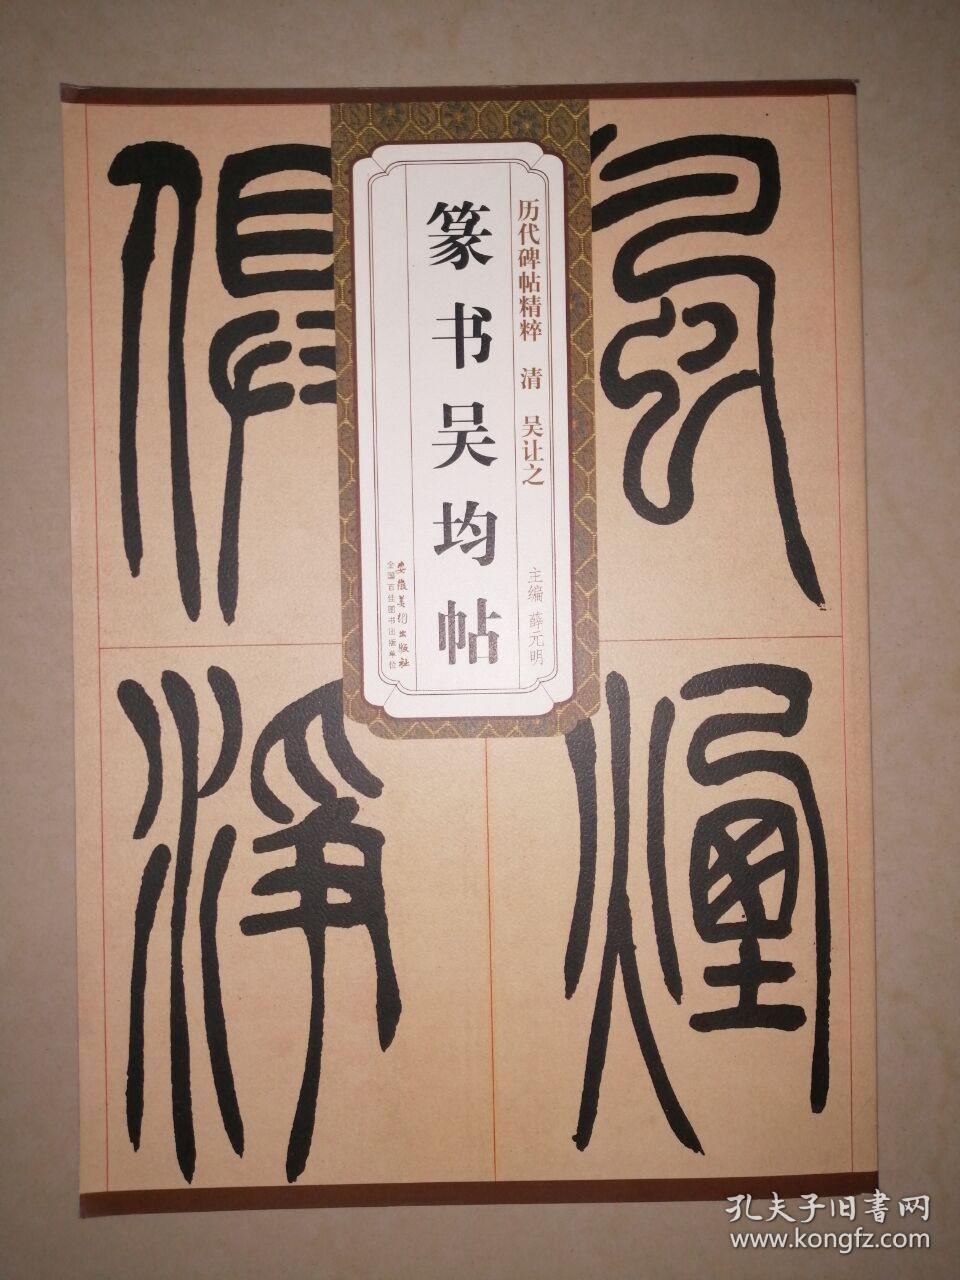 風煙
俱淨
历代碑帖精粹 清 吴让之
主编 薛元明
篆书吴均帖
安徽美术出版社
全国百佳图书出版单位
孔夫子旧書网
www.kongfz.com